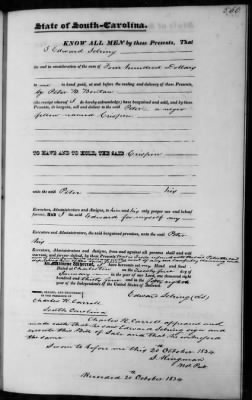 560
State of South-Carolina.
KNOW ALL MEN by these Presents, That
I Edward Sebring
for and in consideration of the sum of Four hundred Dollars
to me in hand paid, at and before the sealing and delivery of these Presents,
by Peter
(the receipt whereof I do hereby acknowledge) have bargained and sold, and by these
Presents, do bargain, sell and deliver to the said Peter a negro
fellow named Crispin
TO HAVE AND TO HOLD, THE SAID Crispin
unto the said Peter his
Executors, Administrators and Assigns, to his and their only proper use and behoof
forever. AND I the said Edward for myself my
Executors, Administrators, the said bargained premises, unto the said Peter
his
Executors, Administrators and Assigns, from and against all persons shall and will
warrant, and forever defend, by these Presents
In Witness Whereof, I have set my
Dated at Charleston on the
in the year of our Lord, one thousand eight
hundred and thirty and in the Fifty
Year of the Independence of the United States of America.
SIGNED, SEALED, AND DELIVERED
IN THE PRESENCE OF
Edward Sebring (LS)
Charles H. Carroll
South Carolina
Charles H. Carroll appeared and
made oath that he saw Edward Sebring sign and
execute this Bill of Sale and that he witnessed
the same
Sworn to before me this 20 October 1834
Recorded 20th October 1834